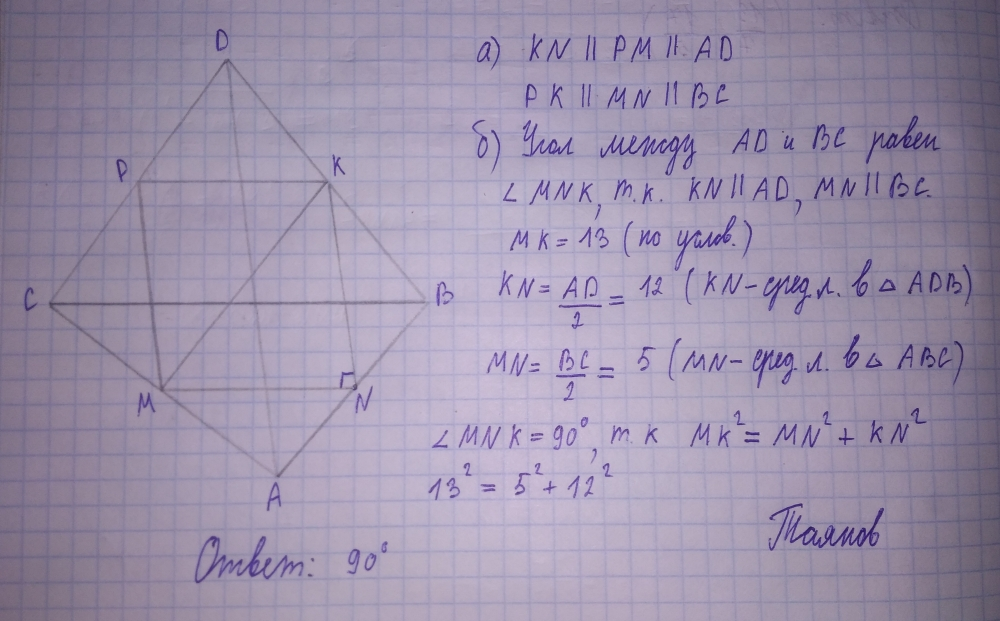 D
P
K
C
B
M
N
A
а) KN || PM || AD
PK || MN || BC
б) Угол между AD и BC равен
∠ MNK, т.к. KN || AD, MN || BC.
MK = 13 (по услов.)
KN = AD/2 = 12 (KN - сред. л. в △ ADB)
MN = BC/2 = 5 (MN - сред. л. в △ ABC)
∠ MNK = 90°, т.к MK² = MN² + KN²
13² = 5² + 12²
Таяпов
Ответ: 90°